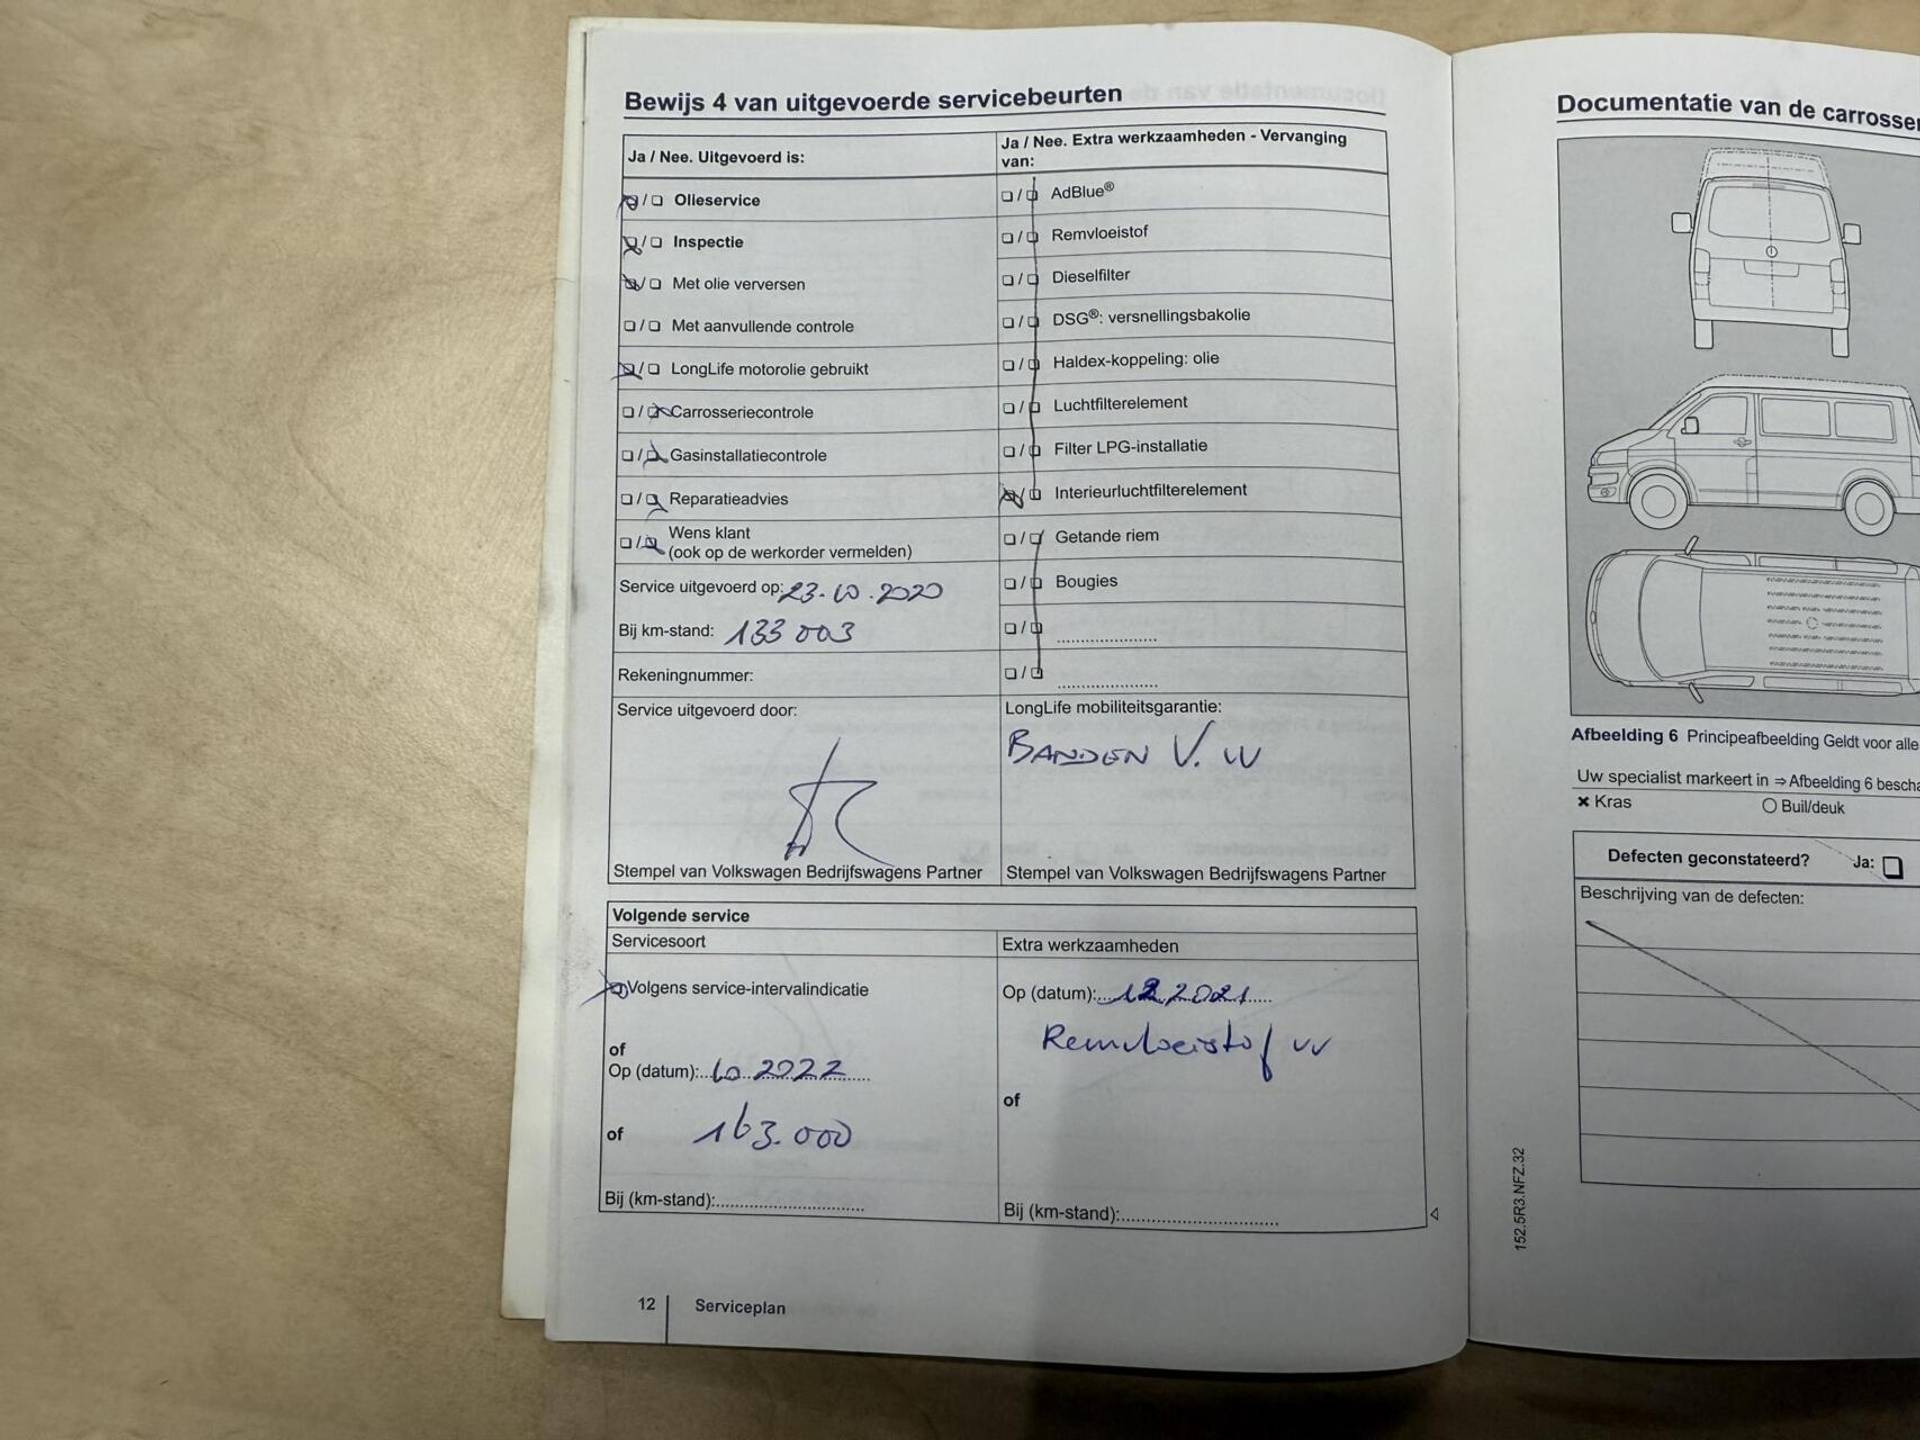 Bewijs 4 van uitgevoerde servicebeurten
Ja / Nee. Uitgevoerd is:
Olieservice
Inspectie
Met olie verversen
Met aanvullende controle
LongLife motorolie gebruikt
Carrosseriecontrole
Gasinstallatiecontrole
Reparatieadvies
Wens klant
(ook op de werkorder vermelden)
Service uitgevoerd op: 23-10.2020
Bij km-stand: 133 003
Rekeningnummer:
Service uitgevoerd door:
Stempel van Volkswagen Bedrijfswagens Partner
Ja / Nee. Extra werkzaamheden - Vervanging
van:
AdBlue®
Remvloeistof
Dieselfilter
DSG®: versnellingsbakolie
Haldex-koppeling: olie
Luchtfilterelement
Filter LPG-installatie
Interieurluchtfilterelement
Getande riem
Bougies
LongLife mobiliteitsgarantie:
BANDEN V. W
Stempel van Volkswagen Bedrijfswagens Partner
Volgende service
Servicesoort
Volgens service-intervalindicatie
of
Op (datum): 10 2022
of 163.000
Bij (km-stand):
Extra werkzaamheden
Op (datum): 12 2021
Remvloeistof vv
of
Bij (km-stand):
12 Serviceplan
Documentatie van de carrosser
Afbeelding 6 Principeafbeelding Geldt voor alle
Uw specialist markeert in ⇒ Afbeelding 6 bescha
× Kras
Buil/deuk
Defecten geconstateerd? Ja:
Beschrijving van de defecten:
152.5R3.NFZ.32